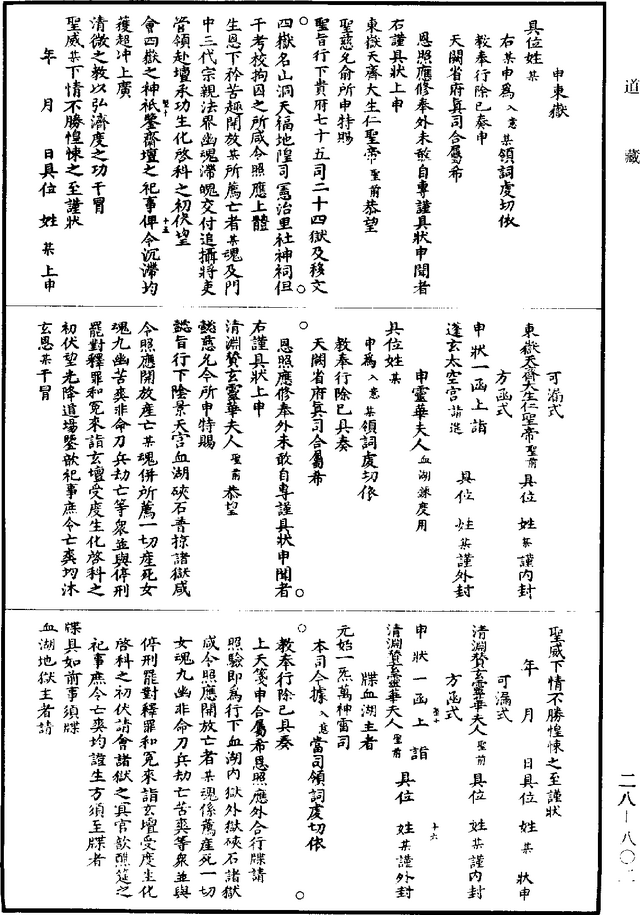 道藏
申東嶽
具位姓某
右某申為入意某領詞虔切依
教奉行除已奏申
天闕省府真司合屬希
恩照應修奉外未敢自專謹具狀申聞者
右謹具狀上申
東嶽天齊大生仁聖帝聖前恭望
聖慈允俞所申特賜
聖旨行下貴府七十五司二十四獄及移文
四嶽名山洞天福地隍司憲治里社神祠但
干考校拘囚之所咸令照應上體
生恩下矜苦趣開放某所薦亡者某魂及門
中三代宗親法界幽魂滯魄交付追攝將吏
管領赴壇承功生化啓科之初伏望
會四嶽之神祇鑒齋壇之祀事俾令沉滯均
獲超沖上廣
清微之教以弘濟度之功干冒
聖威某下情不勝惶悚之至謹狀
年月日具位姓某上申
可漏式
東嶽天齊大生仁聖帝聖前具位姓某謹內封
方函式
申狀一函上詣
蓬玄太空宮請進具位姓某謹外封
申靈華夫人血湖鍊度用
具位姓某
申為入意某領詞虔切依
教奉行除已具奏
天闕省府真司合屬希
恩照應修奉外未敢自專謹具狀申聞者
右謹具狀上申
清淵贊玄靈華夫人聖前恭望
懿慈允令所申特賜
懿旨行下陰景天宮血湖硤石普掠諸獄咸
令照應開放產亡某魂併所薦一切產死女
魂九幽苦爽非命刀兵劫亡等衆並與停刑
罷對釋罪和冤來詣玄壇受度生化啓科之
初伏望光降道場鑒歆祀事庶令亡爽均沐
玄恩某干冒
聖威下情不勝惶悚之至謹狀
年月日具位姓某狀申
可漏式
清淵贊玄靈華夫人聖前具位姓某謹內封
方函式
申狀一函上詣
清淵贊玄靈華夫人聖前具位姓某謹外封
牒血湖主者
元始一炁萬神雷司
本司今據入意當司領詞虔切依
教奉行除已具奏
上天箋申合屬希恩照應外合行牒請
照驗即為行下血湖內獄外獄硤石諸獄
咸令照應開放亡者某魂係薦產死一切
女魂九幽非命刀兵劫亡苦爽等衆並與
停刑罷對釋罪和冤來詣玄壇受度生化
啓科之初伏請會諸獄之真官歆醮筵之
祀事庶令亡爽均證生方須至牒者
牒具如前事須牒
血湖地獄主者請
二八—八〇二